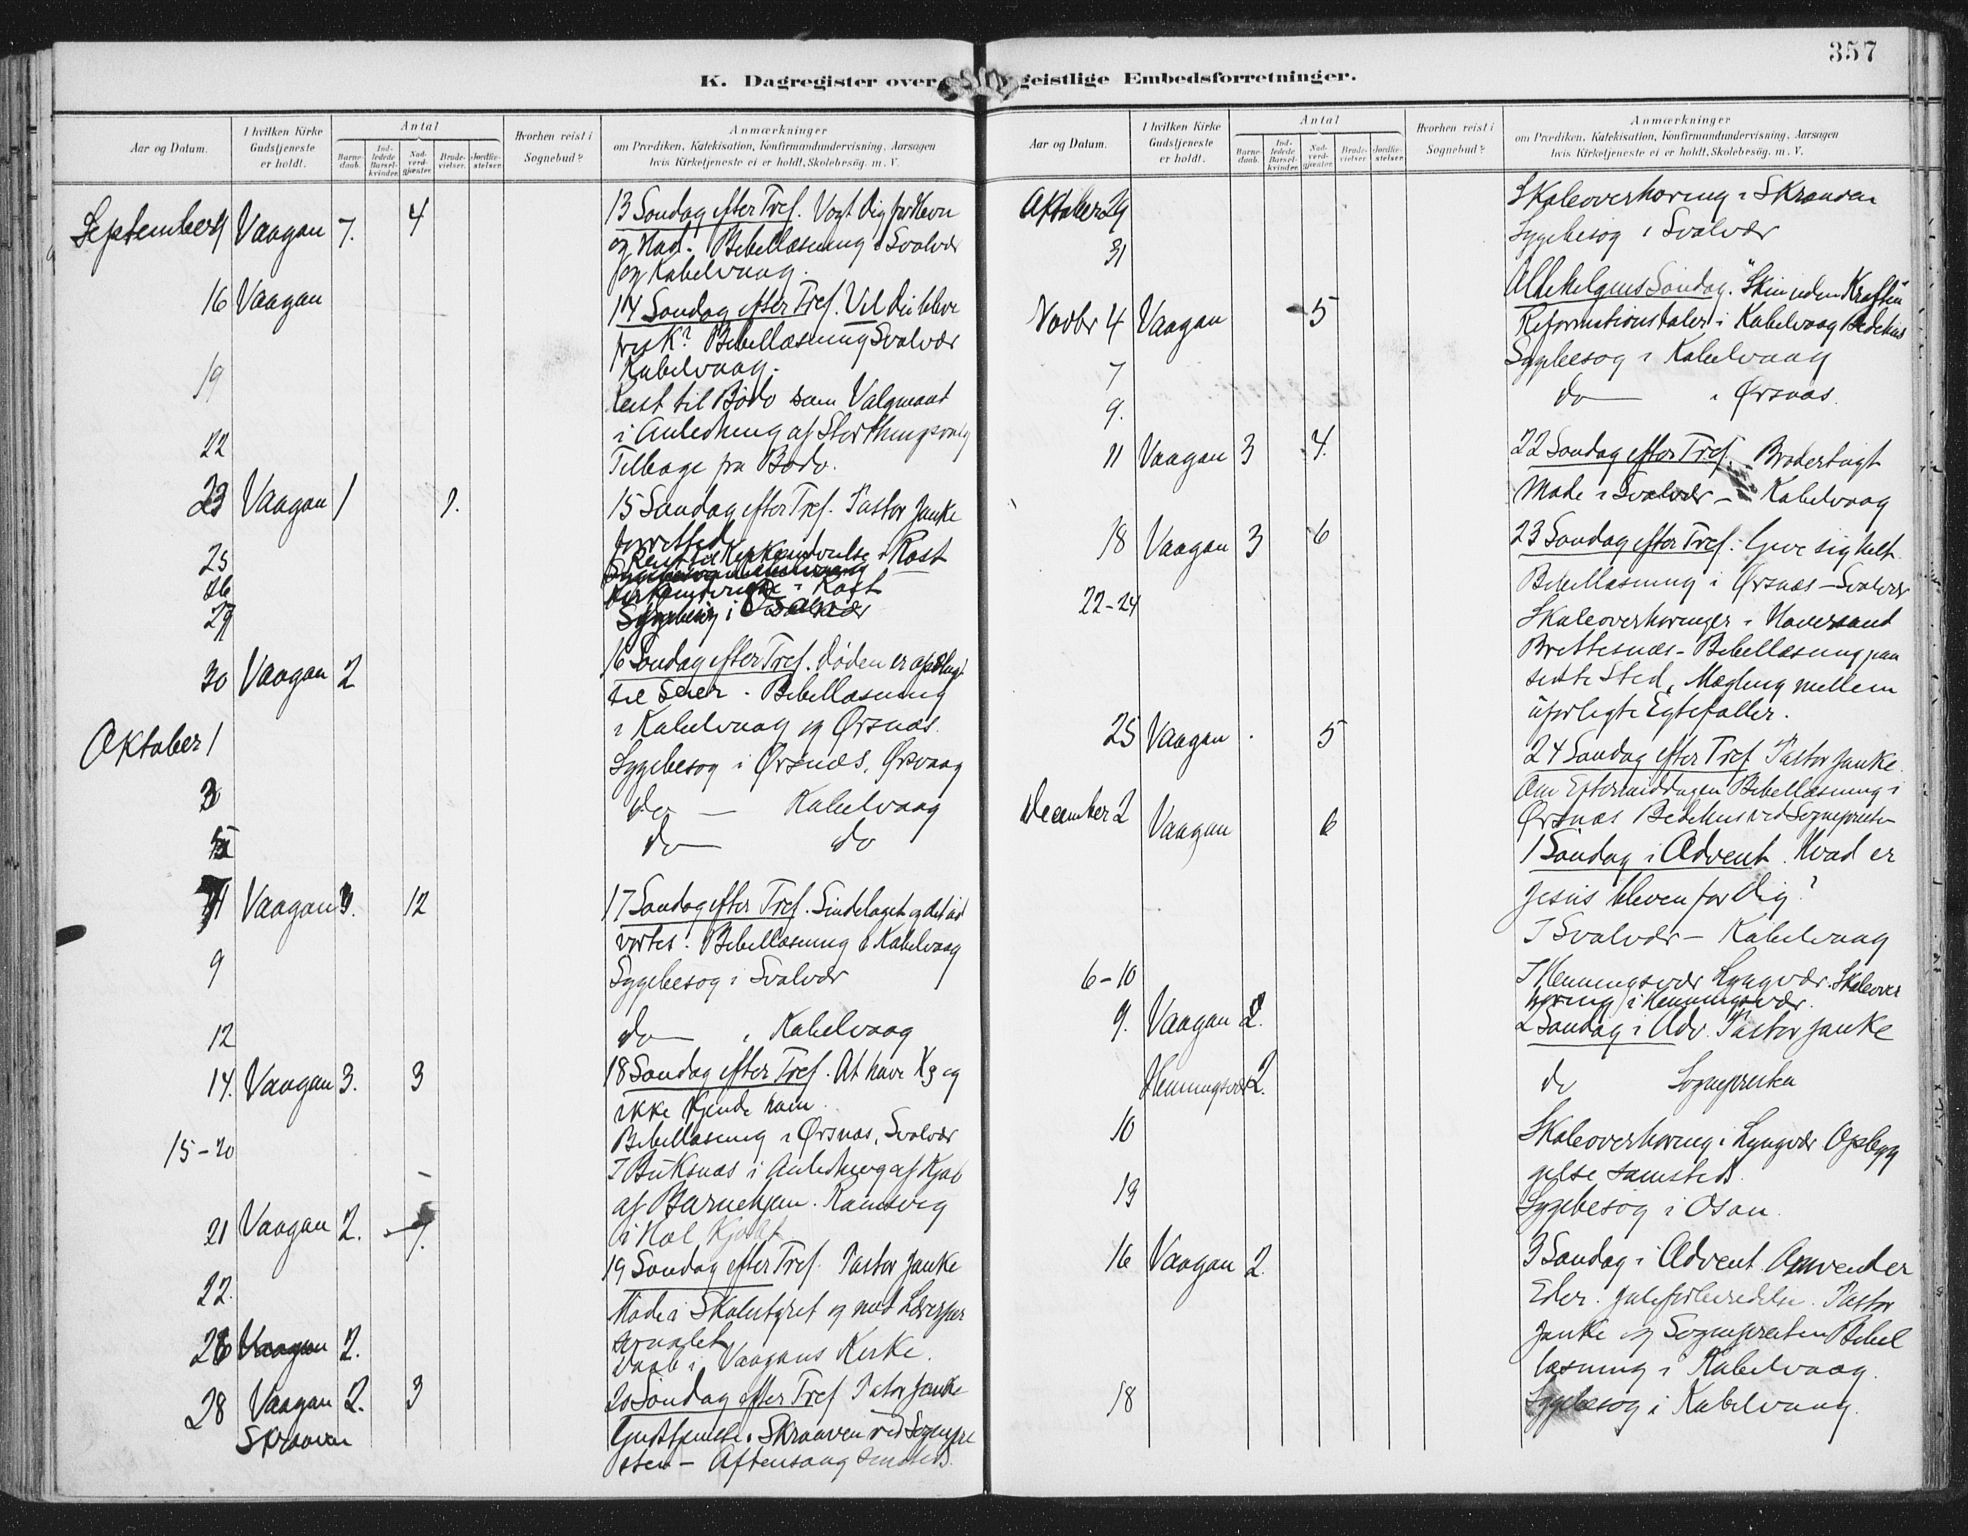 357
K. Dagregister over geistlige Embedsforretninger.
Aar og Datum.
I hvilken Kirke Gudstjeneste er holdt.
Antal
Barnedaab.
Indledede Barselkvinder.
Nadverdgjæster.
Brudevielser.
Jordfæstelser.
Hvorhen reist i Sognebud?
Anmærkninger
om Prædiken, Katekisation, Konfirmandundervisning, Aarsagen
hvis Kirketjeneste ei er holdt, Skolebesøg. m. V.
September 9 Vaagan 7. 4 13 Søndag efter Tref. Vogt Dig for Hevn
og Had. Bibellæsning i Svolvær
og Kabelvaag.
16 Vaagan 14 Søndag efter Tref. Vil Du blive
frisk? Bibellæsning Svolvær
Kabelvaag.
19 Reist til Bodø som Valgmand
i Anledning af Storthingsvalg
22 Tilbage fra Bodø.
23 Vaagan 1 1. 15 Søndag efter Tref. Pastor Janke
forrettede
25 Reist til Kirkeindvielse i Røst
26 Kirkeindvielse i Røst
29 Sygebesøg i Svolvær
30 Vaagan 2 16 Søndag efter Tref. Døden er opslugt
til Seier. Bibellæsning
i Kabelvaag og Ørsnæs.
Oktober 1 Sygebesøg i Ørsnæs, Ørsvaag
3 do — Kabelvaag
5 do do
7 Vaagan 3. 12 17 Søndag efter Tref. Sindelaget og det ud
vortes. Bibellæsning i Kabelvaag
9 Sygebesøg i Svolvær
12 do i Kabelvaag
14. Vaagan 3. 3 18 Søndag efter Tref. At have Kg og
ikke kjende ham.
Bibellæsning i Ørsnæs, Svolvær
15-20 I Buksnæs i Anledning af Kjøb
af Barnehjem. Ramsvig
i Hol Kjøbt
21 Vaagan 2. 7. 19 Søndag efter Tref. Pastor Janke
22. Møde i Skolestyret og med Lærerper
sonalet
26 Vaagan 2. Daab i Vaagans Kirke.
28 Vaagan 2. 3 20 Søndag efter Tref Pastor Janke
Skraaven Gudstjeneste i Skraaven ved Sognepre
sten — Aftensang smsteds.
Aar og Datum.
I hvilken Kirke Gudstjeneste er holdt.
Antal
Barnedaab.
Indledede Barselkvinder.
Nadverdgjæster.
Brudevielser.
Jordfæstelser.
Hvorhen reist i Sognebud?
Anmærkninger
om Prædiken, Katekisation, Konfirmandundervisning, Aarsagen
hvis Kirketjeneste ei er holdt, Skolebesøg. m. V.
Oktober 29 Skoleoverhøring i Skraaven
31 Sygebesøg i Svolvær
Novbr 4 Vaagan 5 Allehelgens Søndag. "Skin uden Kraften"
Reformationstaler i Kabelvaag Bedehus
7 Sygebesøg i Kabelvaag
9. do — i Ørsnæs.
11 Vaagan 3 4. 22 Søndag efter Tref. Broderligt
Møde i Svolvær — Kabelvaag
18 Vaagan 3 6 23 Søndag efter Tref. Give sig helt.
Bibellæsning i Ørsnæs — Svolvær
22-24 Skoleoverhøringer i Haversand
Brettesnæs — Bibellæsning paa
sidste Sted, Mægling mellem
uforligte Egtefoller.
25 Vaagan . 5 24 Søndag efter Tref Pastor Janke.
Om Eftermiddagen Bibellæsning i
Ørsnæs Bedehus ved Sognepresten
December 2 Vaagan 6 1 Søndag i Advent. Hvad er
Jesus bleven for Dig?
I Svolvær — Kabelvaag
6-10 I Henningsvær Lyngvær. Skoleover
høring i Henningsvær.
9. Vaagan 2. 2 Søndag i Adv. Pastor Janke
Henningsvær 2. do Sognepresten
10 Skoleoverhøring i Lyngvær Opbygg
gelse samsteds.
13 Sygebesøg i Osan.
16 Vaagan 2. 3 Søndag i Advent Omvender
Eder. Juleforberedelse. Pastor
Janke og Sognepresten Bibel
læsning i Kabelvaag.
18 Sygebesøg i Kabelvaag.